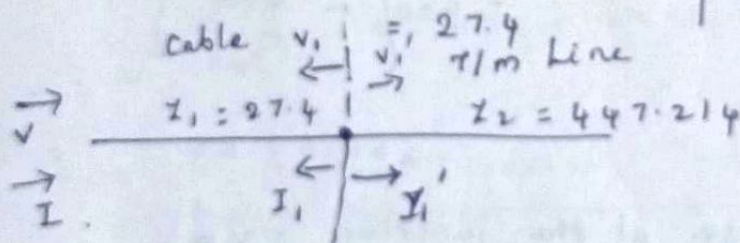 = 27.4
Cable V₁ V₁' T/m Line
V Z₁ = 27.4 Z₂ = 447.214
I I₁ I₁'